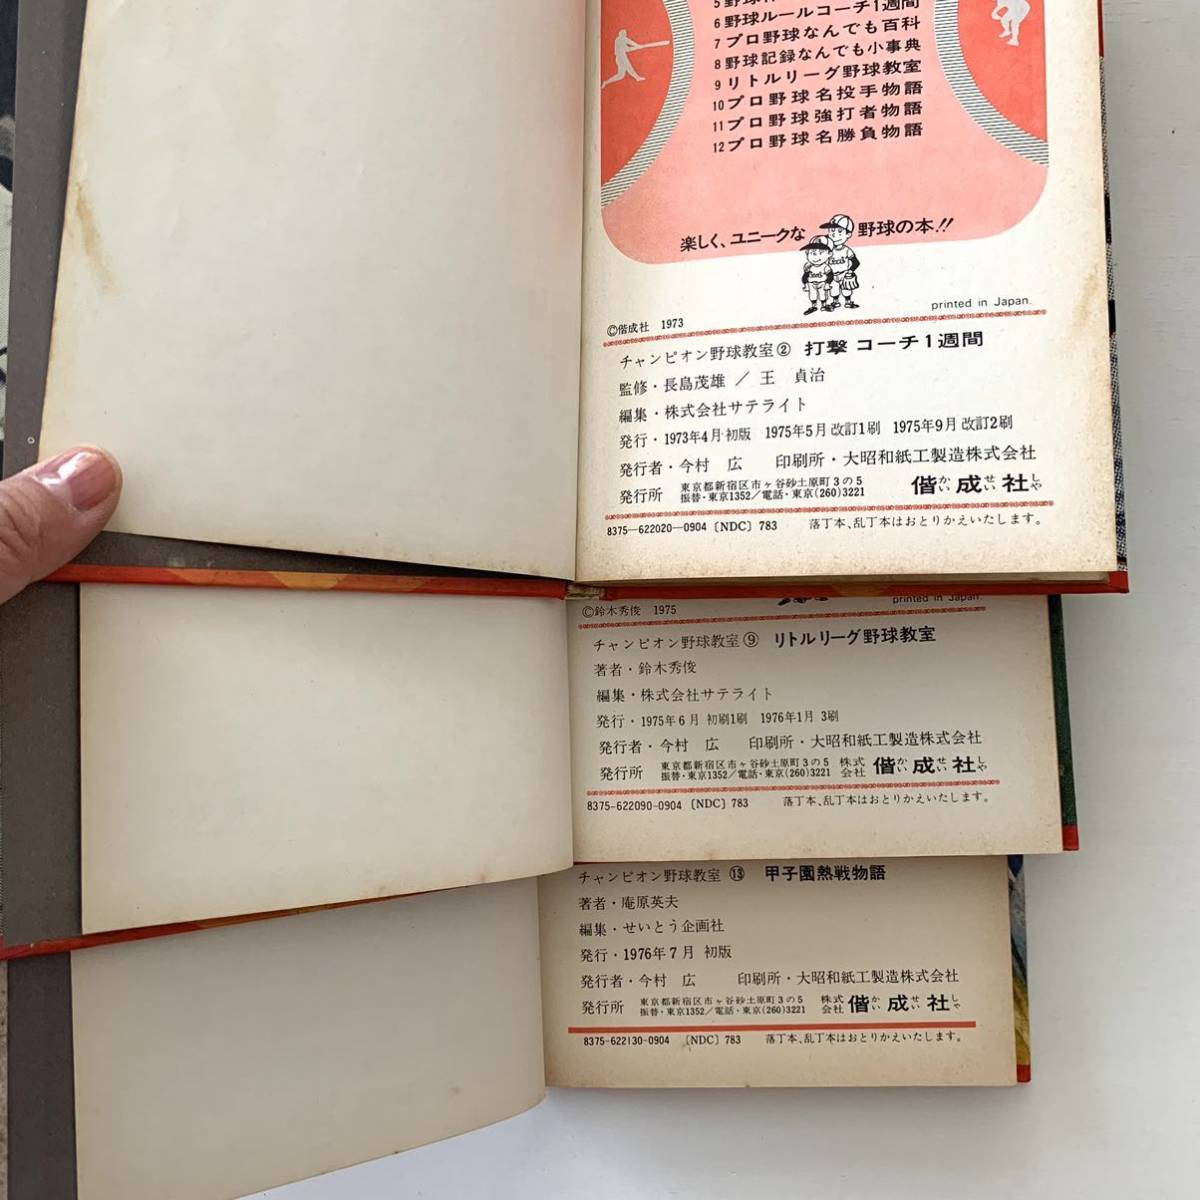 6 野球ルールコーチ1週間
7 プロ野球なんでも百科
8 野球記録なんでも小事典
9 リトルリーグ野球教室
10 プロ野球名投手物語
11 プロ野球強打者物語
12 プロ野球名勝負物語
楽しく、ユニークな 野球の本!!
printed in Japan.
©偕成社 1973
チャンピオン野球教室② 打撃 コーチ1週間
監修・長島茂雄 / 王 貞治
編集・株式会社サテライト
発行・1973年4月 初版 1975年5月 改訂1刷 1975年9月 改訂2刷
発行者・今村 広 印刷所・大昭和紙工製造株式会社
発行所 東京都新宿区市ヶ谷砂土原町3の5
振替・東京1352/電話・東京(260)3221 偕かい成せい社しゃ
8375-622020-0904 〔NDC〕783 落丁本、乱丁本はおとりかえいたします。
©鈴木秀俊 1975
printed in Japan.
チャンピオン野球教室⑨ リトルリーグ野球教室
著者・鈴木秀俊
編集・株式会社サテライト
発行・1975年6月 初刷1刷 1976年1月 3刷
発行者・今村 広 印刷所・大昭和紙工製造株式会社
発行所 東京都新宿区市ヶ谷砂土原町3の5
振替・東京1352/電話・東京(260)3221 株式会社 偕かい成せい社しゃ
8375-622090-0904 〔NDC〕783 落丁本、乱丁本はおとりかえいたします。
チャンピオン野球教室 ⑬ 甲子園熱戦物語
著者・庵原英夫
編集・せいとう企画社
発行・1976年7月 初版
発行者・今村 広 印刷所・大昭和紙工製造株式会社
発行所 東京都新宿区市ヶ谷砂土原町3の5
振替・東京1352/電話・東京(260)3221 株式会社 偕かい成せい社しゃ
8375-622130-0904 〔NDC〕783 落丁本、乱丁本はおとりかえいたします。